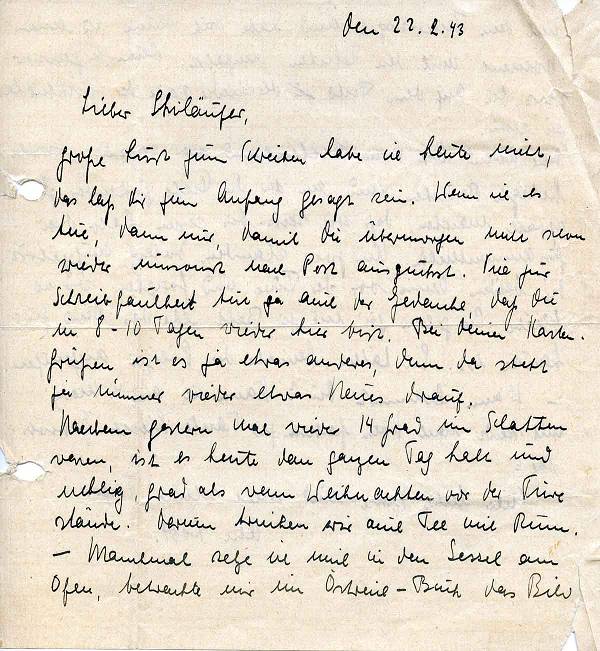 Den 22.2.43
Lieber Skiläufer,
große Lust zum Schreiben habe ich heute nicht,
das laß Dir zum Anfang gesagt sein. Wenn ich es
tue, dann nur, damit Du übermorgen nicht schon
wieder umsonst nach Post ausguckst.
Schreibfaulheit tut ja auch der Gedanke, daß Du
in 8-10 Tagen wieder hier bist. Bei deinen Karten-
grüßen ist es ja etwas anderes, denn da steht
ja immer wieder etwas Neues drauf.
Nachdem gestern mal wieder 14 Grad im Schatten
waren, ist es heute den ganzen Tag kalt und
neblig, grad als wenn Weihnachten vor der Türe
stände. Darum trinken wir auch Tee mit Rum.
– Manchmal setze ich mich in den Sessel am
Ofen, betrachte mir im Östreich-Buch das Bild